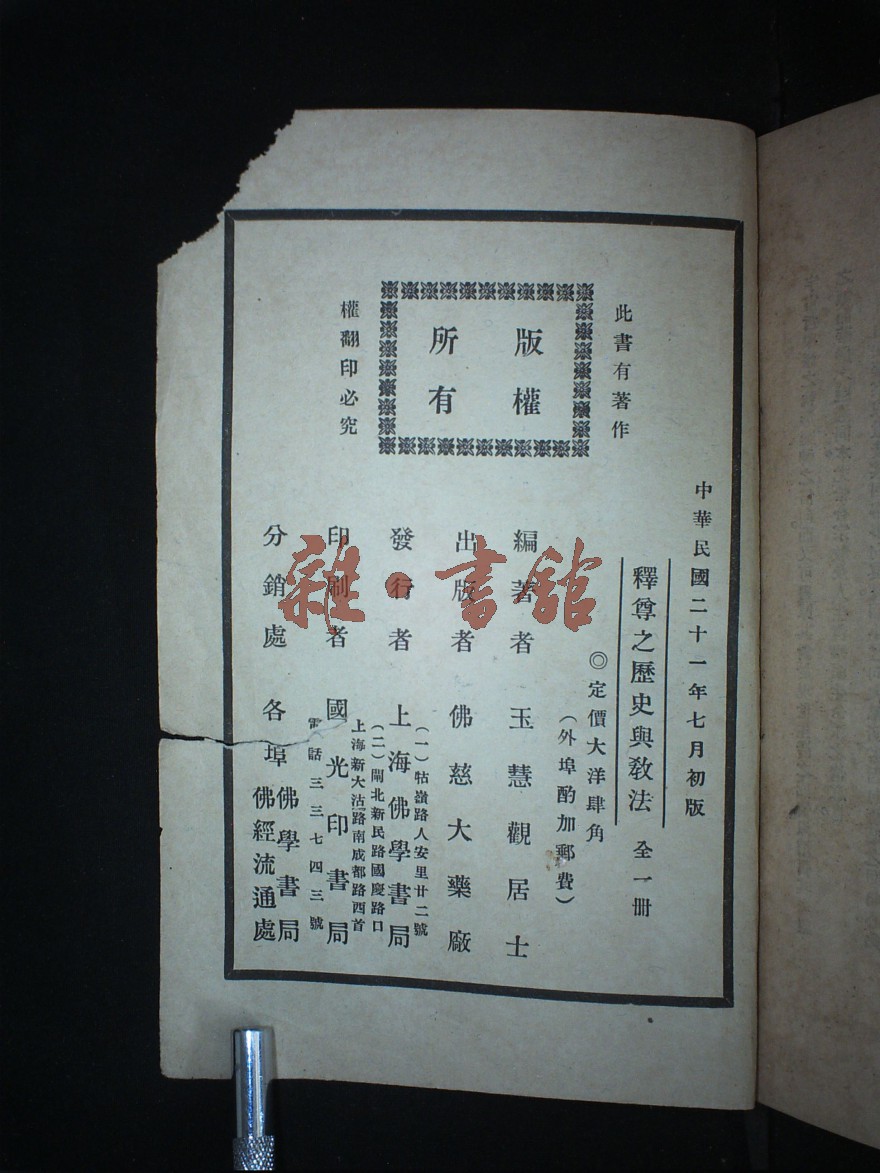 中華民國二十一年七月初版
釋尊之歷史與教法 全一冊
◎定價大洋肆角
(外埠酌加郵費)
此書有著作
版權
所有
權翻印必究
編著者 玉慧觀居士
出版者 佛慈大藥廠
發行者 上海佛學書局
(一)牯嶺路人安里廿二號
(二)閘北新民路國慶路口
印刷者 國光印書局
上海新大沽路南成都路西首
電話三三七四三號
分銷處 各埠
佛學書局
佛經流通處
雜·書館